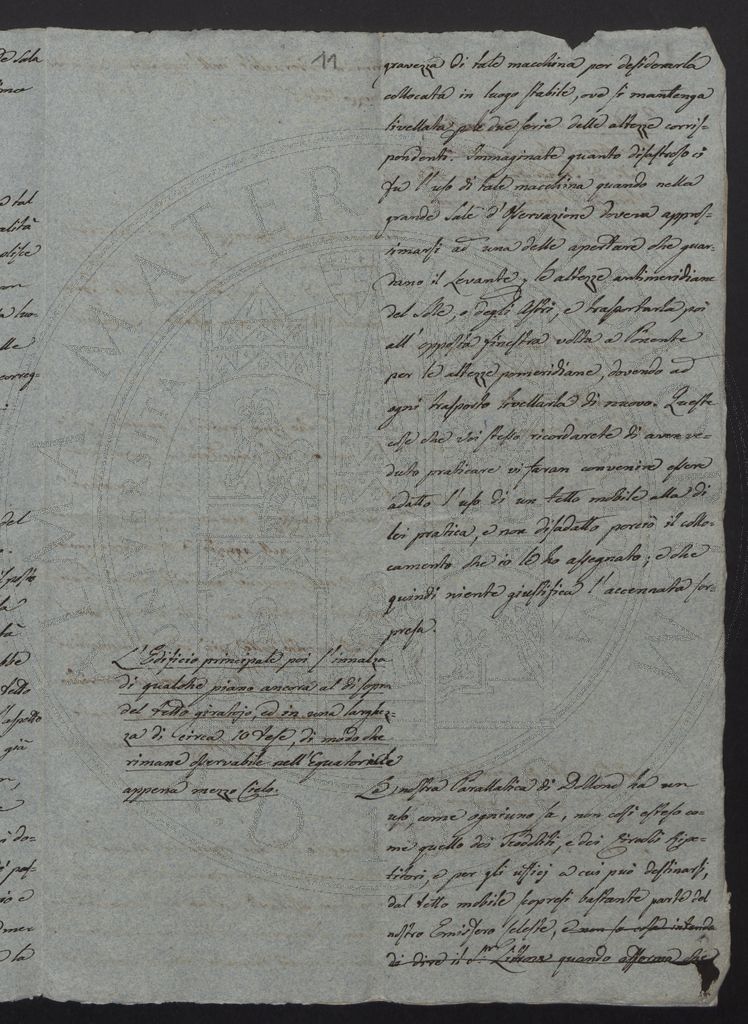 11
gravezza di tale macchina per desiderarla
collocata in luogo stabile, ove si mantenga
livellata per le due serie delle altezze corris-
pondenti. Immaginate quanto disastroso ci
fu l'uso di tale macchina quando nella
grande Sala d'Osservazione doveva appros-
simarsi ad una delle aperture che guar-
dano il Levante, le altezze antimeridiane
del Sole, e degli Astri, e trasportarla poi
all'opposta finestra volta a Ponente
per le altezze pomeridiane, dovendo ad
ogni trasporto livellarla di nuovo. Queste
cose che voi stesso ricordarete di aver ve-
duto praticare vi faran convenire essere
adatto l'uso di un tetto mobile alla di
lei pratica, e non disadatto perciò il collo-
camento che io le ho assegnato; e che
quindi niente giustifica l'accennata sor-
presa.
L'Edificio principale poi s'innalza
di qualche piano ancora al di sopra
del tetto giratojo, ed in una larghez-
za di circa 10 Tese, di modo che
rimane osservabile nell'Equatoriale
appena mezzo Cielo.
La nostra Parallatica di Dollond ha un
uso, come ognuno sa, non così esteso co-
me quello dei Teodoliti, e dei Circoli Ripe-
titori, e per gli ufficj a cui può destinarsi,
dal tetto mobile scopresi bastante parte del
nostro Emisfero Celeste, e non so cosa intenda
di dire il S.r Littrow quando afferma che